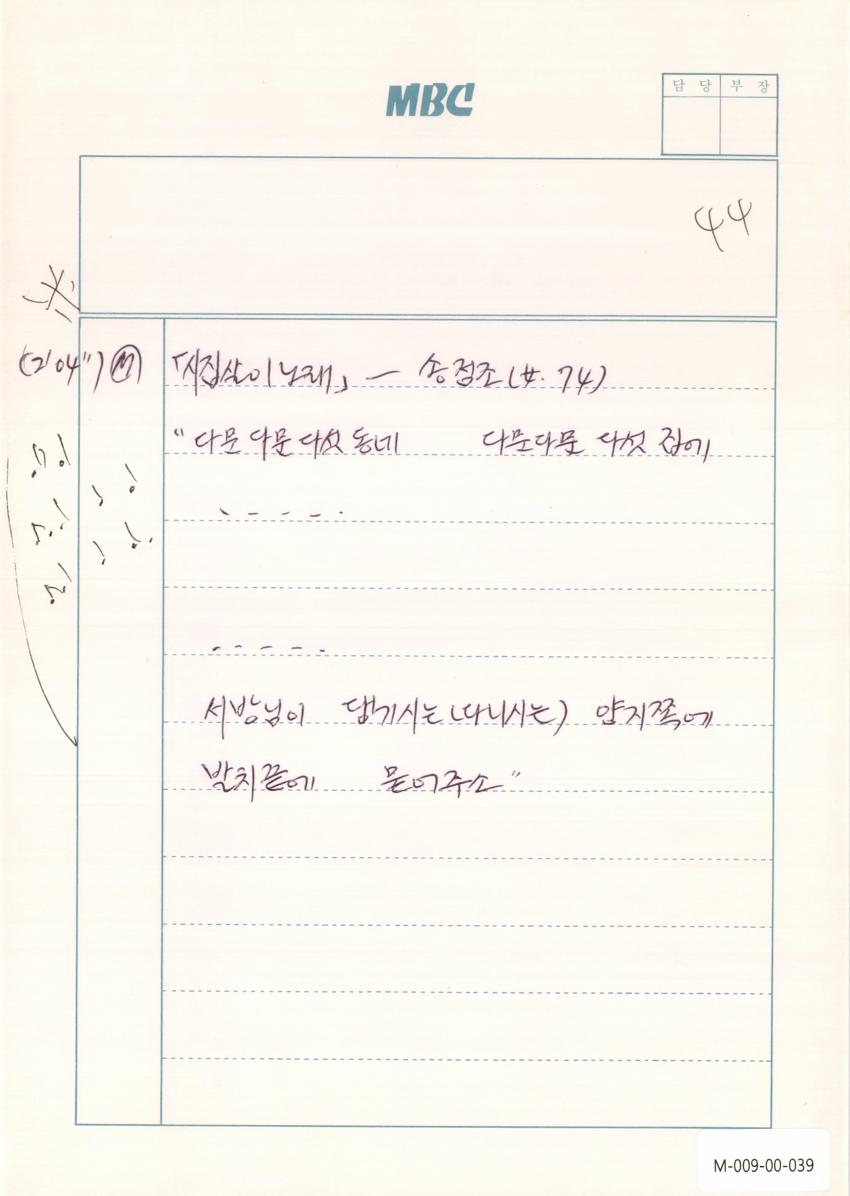 MBC
담당 부장
44
(2'04") Ⓜ 「시집살이 노래」 — 송점조(女. 74)
"다문 다문 다섯 동네 다문다문 다섯 집에
. - - - .
. - - - - .
서방님이 댕기시는(다니시는) 양지쪽에
발치끝에 묻어주소"
M-009-00-039